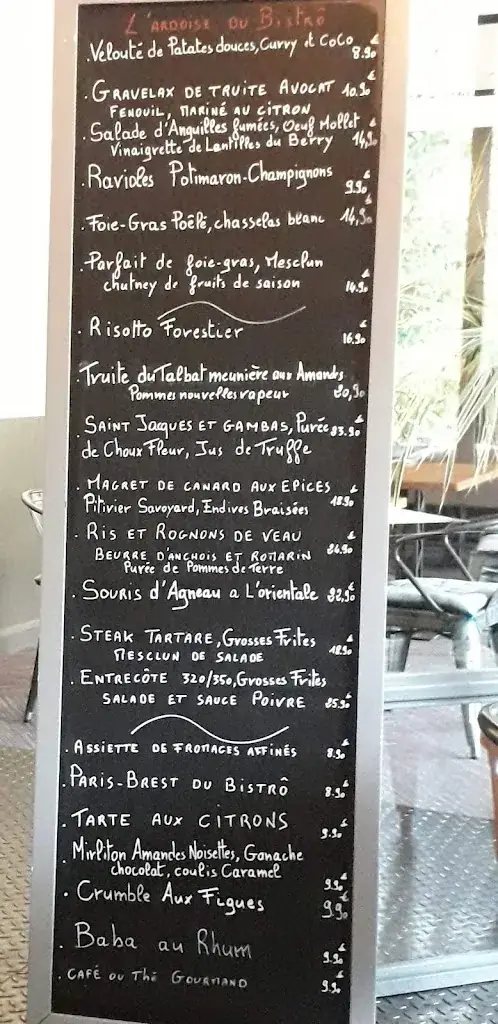 L'ARDOISE DU BISTRÔ
. Velouté de Patates douces, Curry et CoCo 8.90€
. GRAVELAX DE TRUITE AVOCAT 10.90€
FENOUIL, MARINÉ AU CITRON
. Salade d'Anguilles fumées, Oeuf Mollet
Vinaigrette de Lentilles du Berry 14,90€
. Ravioles Potimaron-Champignons
9.90€
. Foie-Gras Poêlé, chasselas blanc 14,90€
. Parfait de foie-gras, Mesclun
chutney de fruits de saison 14.90€
. Risotto Forestier
16.90€
. Truite du Talbat meunière aux Amandes
Pommes nouvelles vapeur 20,90€
. SAINT JAQUES ET GAMBAS, Purée 23.90€
de Choux Fleur, Jus de Truffe
. MAGRET DE CANARD AUX EPICES
Pitivier Savoyard, Endives Braisées 18.90€
. RIS ET ROGNONS DE VEAU
BEURRE D'ANCHOIS ET ROMARIN 24.90€
Purée de Pommes de Terre
. SOURIS d'Agneau a L'orientale 22,90€
. STEAK TARTARE, Grosses Frites
MESCLUN DE SALADE 18.90€
. ENTRECÔTE 320/350, Grosses Frites
SALADE ET SAUCE POIVRE 25.90€
. ASSIETTE DE FROMAGES AFFINÉS 8.90€
. PARIS-BREST DU BISTRÔ 8.90€
. TARTE AUX CITRONS
9.90€
. Mirliton Amandes Noisettes, Ganache
chocolat, coulis Caramel 9.90€
. Crumble Aux Figues 9.90€
. Baba au Rhum 9.90€
. CAFÉ OU Thé GOURMAND 9.90€